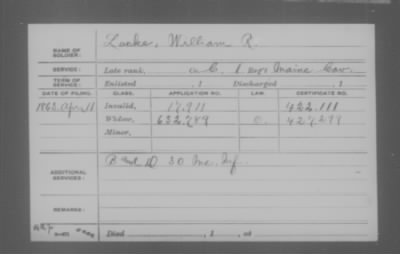 NAME OF SOLDIER: Locke, William R.
SERVICE: Late rank, Co. C, 1 Reg't Maine Cav.
TERM OF SERVICE: Enlisted , 1 Discharged , 1
DATE OF FILING. CLASS. APPLICATION NO. LAW. CERTIFICATE NO.
1863 Apr 11 Invalid, 17,911 422,111
Widow, 632,789 427,299
Minor,
ADDITIONAL SERVICES: B and D 30 Me. Inf.
REMARKS:
Died , 1 , at